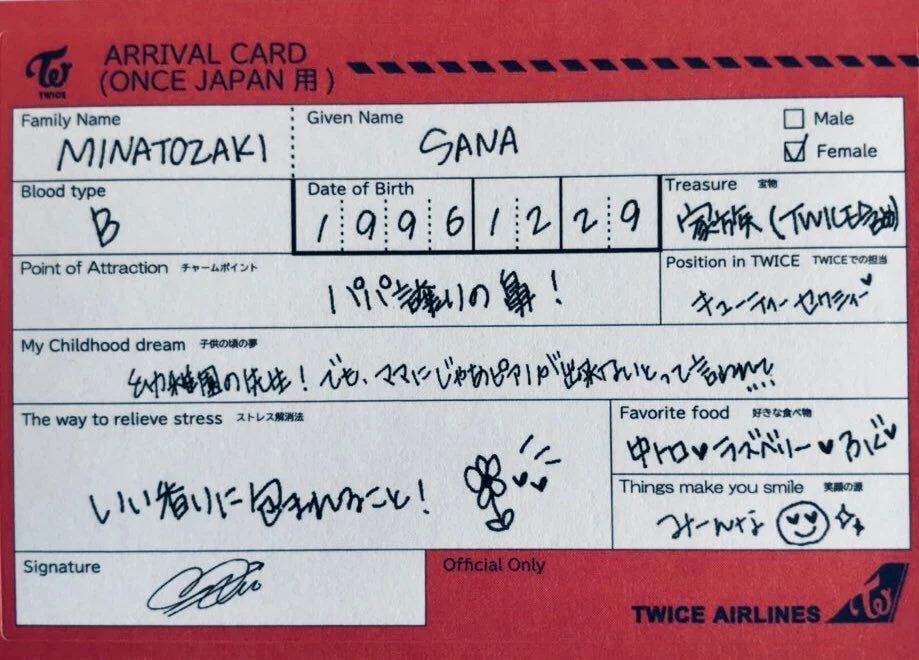 TWICE
ARRIVAL CARD
(ONCE JAPAN 用)
Family Name
MINATOZAKI
Given Name
SANA
Male
Female
Blood type
B
Date of Birth
1996 12 29
Treasure 宝物
家族 (TWICE含む)
Point of Attraction チャームポイント
パパ譲りの鼻！
Position in TWICE TWICEでの担当
キューティー セクシー♥
My Childhood dream 子供の頃の夢
幼稚園の先生！でも、ママにじゃあピアノが出来ないとって言われて....
The way to relieve stress ストレス解消法
いい香りに包まれること！
Favorite food 好きな食べ物
中トロ♥ラズベリー♥
Things make you smile 笑顔の源
みーんな
Signature
Official Only
TWICE AIRLINES